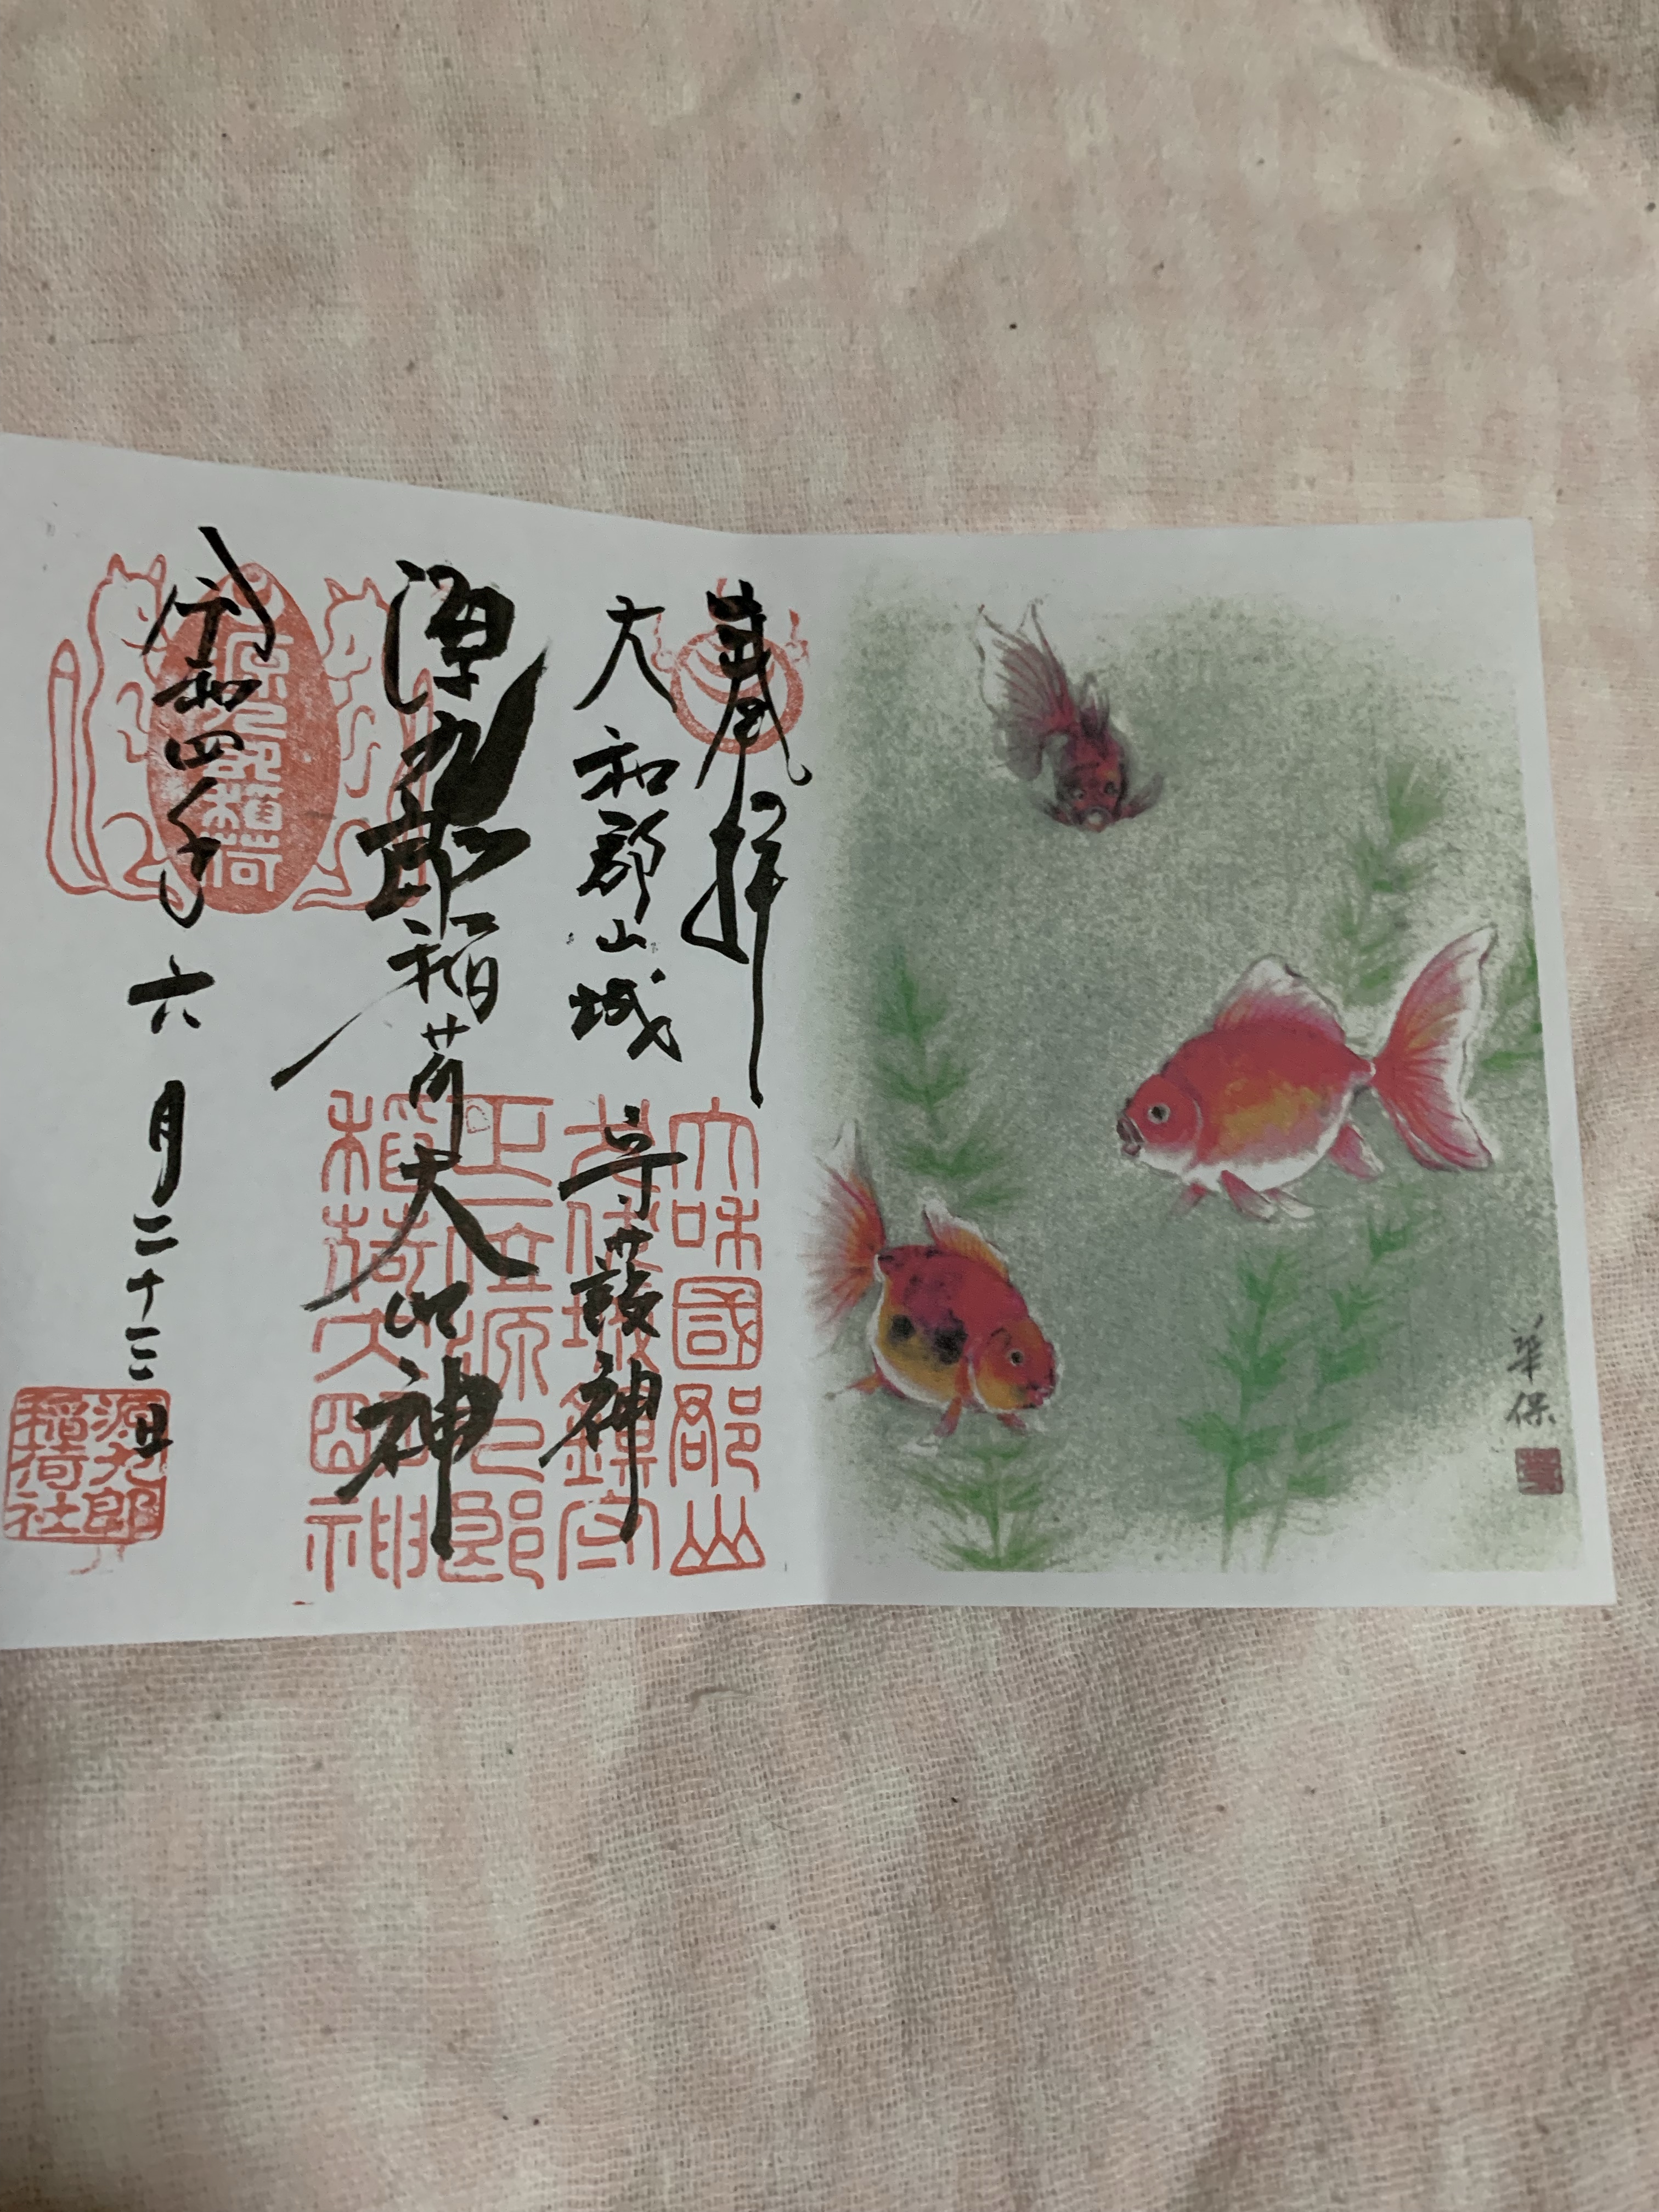 華保
奉拝
大和郡山城 守護神
源九郎稲荷大明神
令和四年六月二十三日
源九郎稲荷
大和國郡山
正一位源九郎
稲荷大明神
源九郎
稲荷社